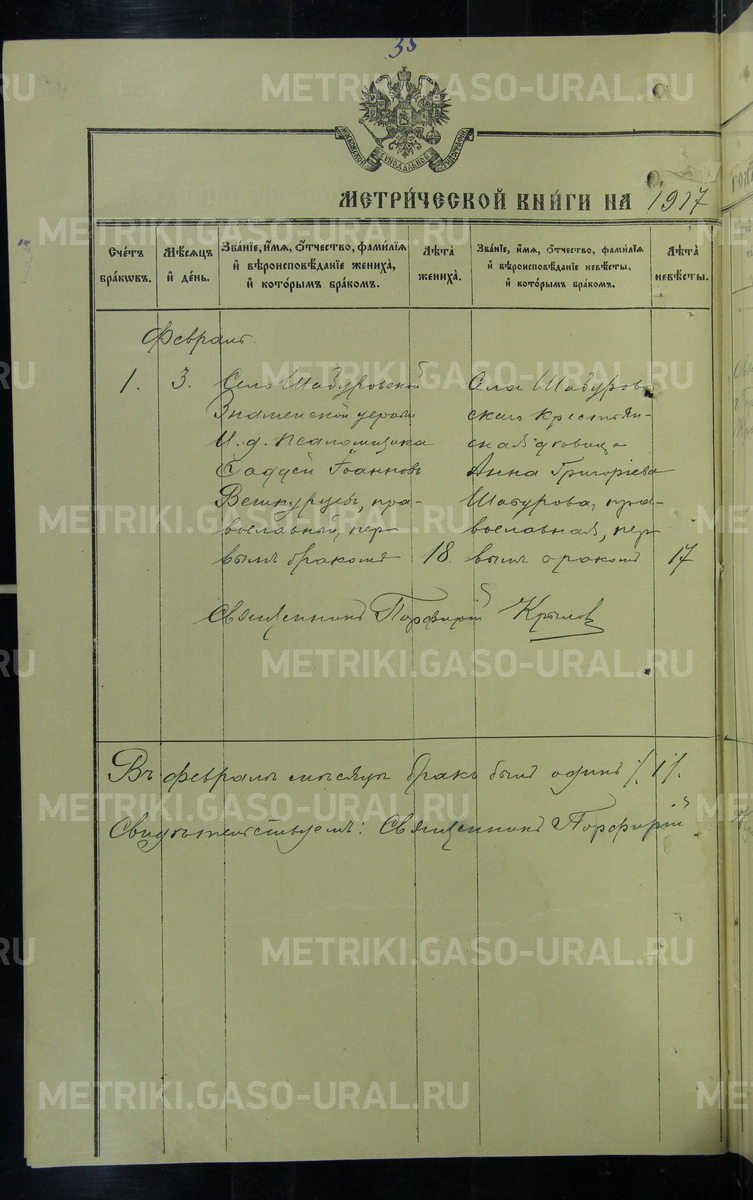 35
МОСКОВСКОЙ СѴНОДАЛЬНОЙ ТИПОГРАФІИ
МЕТРИ́ЧЕСКОЙ КНИ́ГИ НА 1917
Сче́тъ бра́кѡвъ.
Мѣ́сяцъ и҆ де́нь.
Зва́нїе, и҆́мѧ, ѻ҆́тчество, фами́лїѧ и҆ вѣроисповѣ́данїе жениха̀, и҆ кото́рымъ бра́комъ.
Лѣ́та жениха̀.
Зва́нїе, и҆́мѧ, ѻ҆́тчество, фами́лїѧ и҆ вѣроисповѣ́данїе невѣ́сты, и҆ кото́рымъ бра́комъ.
Лѣ́та невѣ́сты.
Февраль
1. 3. Село Шабуровской
Знаменской церкви
И. д. псаломщика
Фаддей Іоанновъ
пра-
вославный, пер
вымъ бракомъ 18.
Села Шабуров
скаго крестьян-
ская дѣвица
Анна Григоріева
Шабурова, пра-
вославная, пер
вымъ бракомъ 17
Священникъ Порфирій Крылов
Въ февралѣ мѣсяцѣ бракъ былъ одинъ /1/.
Свидѣтельствуемъ: Священникъ Порфирій
METRIKI.GASO-URAL.RU